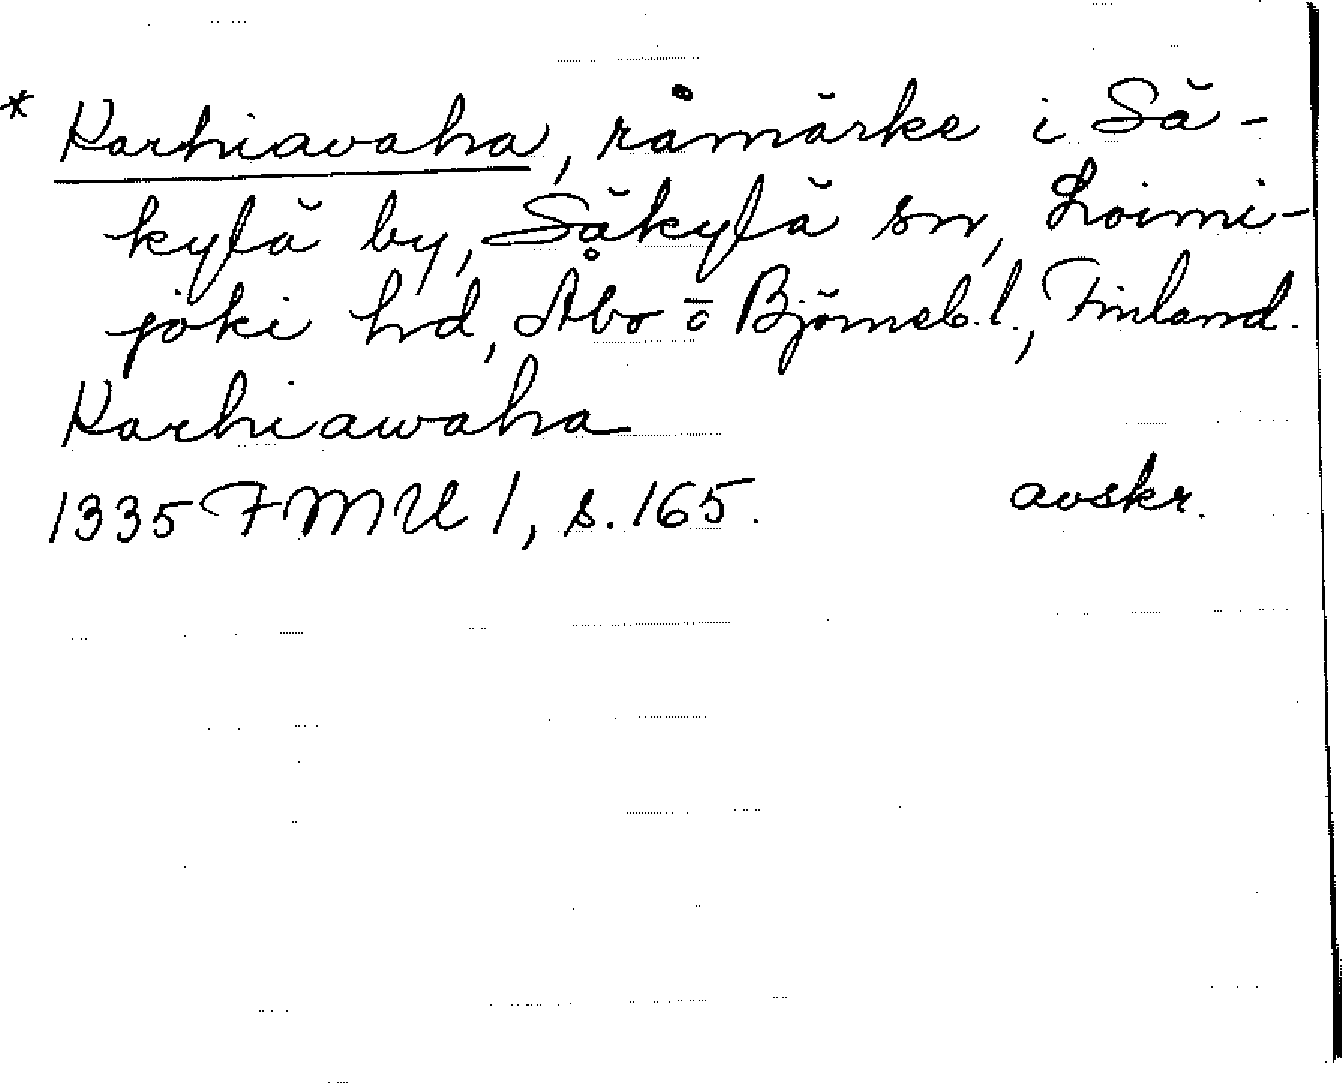 * Karhiavaha, råmärke i Sä-
kylä by, Säkylä sn, Loimi-
joki hd, Åbo o Björneb. l., Finland.
Karhiawaha
1335 FMU 1, s. 165. avskr.